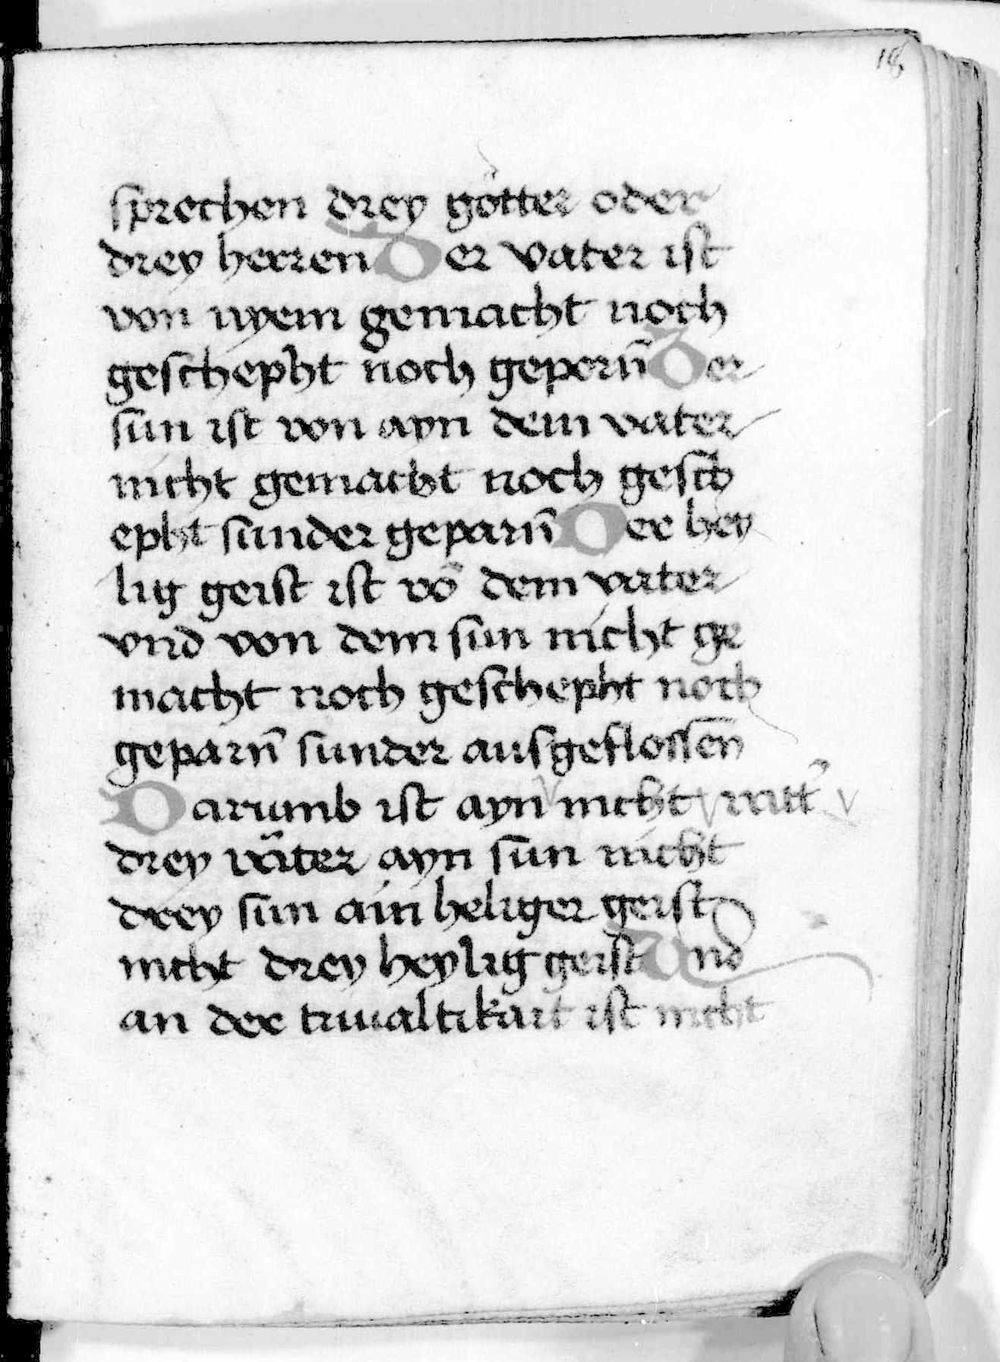 18
sprechen drey götter oder
drey herren Der vater ist
von nyem gemacht noch
geschepht noch geporn̄ Der
sun ist von ayn dem vater
nicht gemacht noch gesch
epht sunder geparn̄ Der hey
lig geist ist vō dem vater
vnd von dem sun nicht ge
macht noch geschepht noch
geparn̄ sunder ausgeflossen
Darumb ist ayn nicht
drey väter ayn sun nicht
drey sun ain heliger geist
nicht drey heylig geist Und
an der triualtikait ist nicht